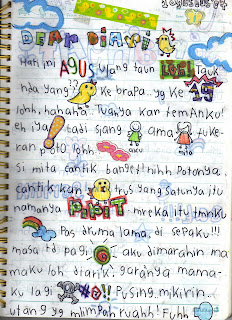 1 Agustus '04
DEAR DIARI
Hari ini AGUS ulang taun LOH! Tauk
nda yang ? Ke brapa.. yg Ke 19
lohh, hahaha. Tuanya kan temanku!
eh iya! tadi siang ama tuke-
ran poto lohh.
aku mita
Si mita cantik banget! nihh Potonya,
cantik kan! trus yang satunya itu
namanya PIPIT mreka itu tmnku
Pas drumalama, di sepaku!!!
masa td pagi aku dimarahin ma
maku loh diarik! garanya mama-
ku lagi !! Pusing mikirin..
utang yg mlimpah ruahh! Fuhh